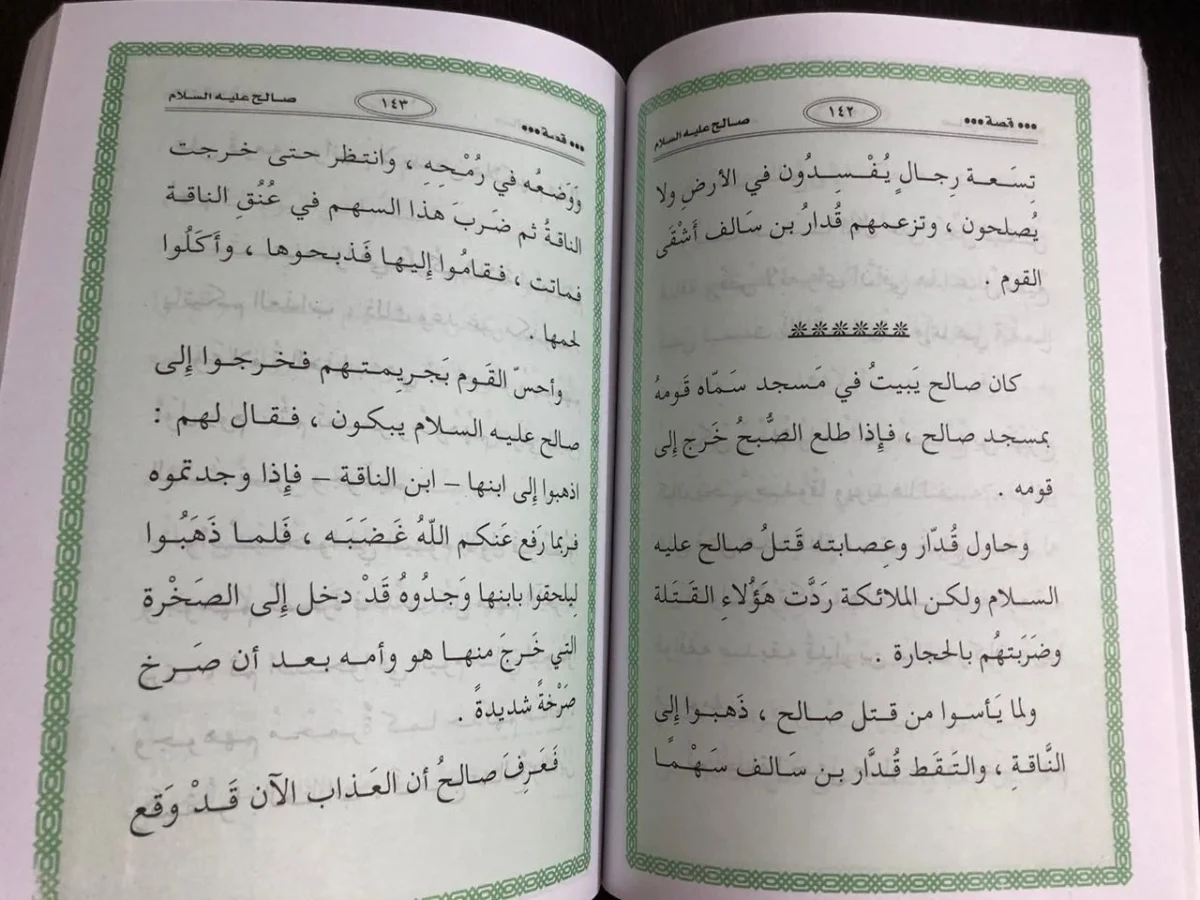 ••• قصة •••
١٤٢
صالح عليه السلام
تِسَعة رِجالٍ يُفْسِدُون في الأرضِ ولا
يُصلحون ، وتزعمهم قُدارُ بن سَالف أَشْقَى
القوم .
******
كان صالح يَبيتُ في مَسجد سَمّاه قَومهُ
بمسجد صالح ، فإِذا طلع الصُّبحُ خَرج إِلى
قومه .
وحاول قُدّار وعِصابته قَتلُ صالح عليه
السلام ولكن الملائكة رَدَّت هَؤُلاءِ القَتَلة
وضَرَبتهُم بالحجارة .
ولما يَأسوا من قتل صالح ، ذَهبوا إِلى
النَّاقةِ ، والتَقَط قُدَّار بن سَالف سَهْمًا
••• قصة •••
١٤٣
صالح عليه السلام
وَوَضعُه في رُمْحِهِ ، وانتظر حتى خرجت
الناقةُ ثم ضَربَ هذا السهم في عُنُقِ الناقة
فماتت ، فقامُوا إِليها فَذبحوها ، وأَكَلُوا
لحمها .
وأحسّ القَوم بَجريمتهم فخرجوا إِلى
صالح عليه السلام يبكون ، فقال لهم :
اذهبوا إِلى ابنها – ابن الناقة – فإِذا وجدتموه
فربما رَفع عَنكم اللّهُ غَضَبَه ، فَلما ذَهَبُوا
لِيلحقوا بابنها وَجدُوهُ قَدْ دخل إِلى الصَخْرة
التي خَرجَ منها هو وأمه بعد أن صَرخ
صَرْخةً شديدةً .
فَعَرِفَ صالحُ أن العَذاب الآن قَدْ وَقع